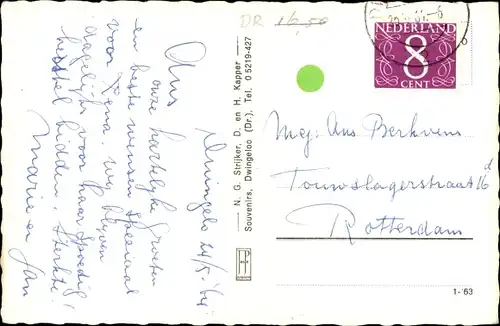 Dwingelo 24/5 '64
Ans
onze hartelijke groeten
en beste wensen speciaal
voor Rena. Wij blijven
dagelijks voor haar spoedig
herstel bidden Sterkte!
Marie en Jan
N. G. Strijker, D. en H. Kapper
Souvenirs, Dwingeloo (Dr.), Tel. 0 5219-427
DR 16,50
NEDERLAND
8
CENT
Mej. Ans Berkvens
Touwslagerstraat 16d
Rotterdam
1-'63